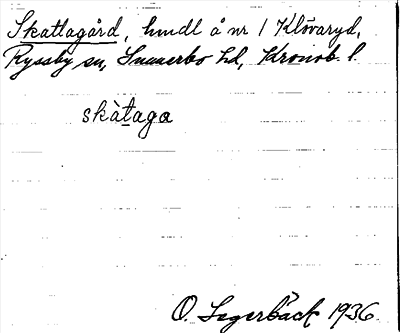 Skattagård, hmdl å nr 1 Klövaryd,
Ryssby sn, Sunnerbo hd, Kronob. l.
skàtaga
O. Segerbäck 1936.